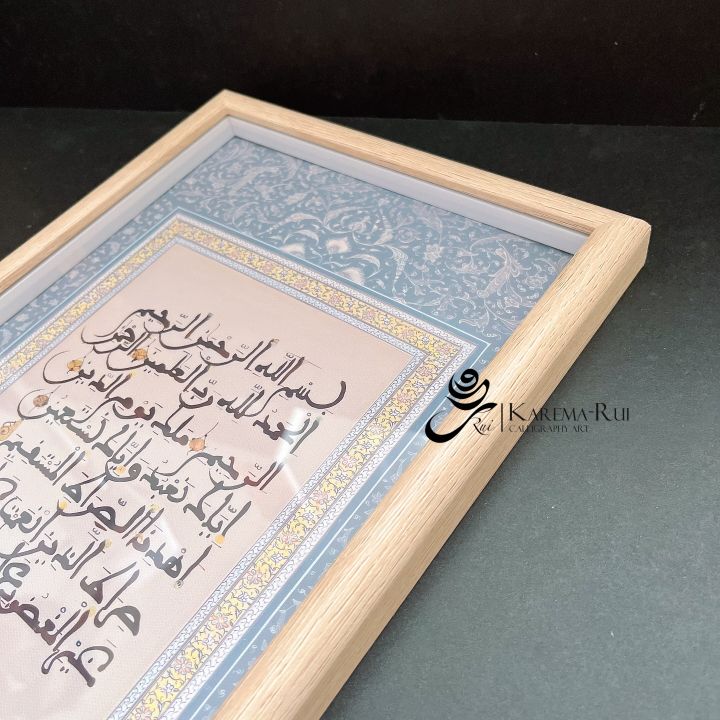 بسم الله الرحمن الرحيم
الحمد لله رب العلمين الرحمن
الرحيم ملك يوم الدين
إياك نعبد وإياك نستعين
اهدنا الصراط المستقيم
صراط الذين أنعمت
غير المغضوب
Rui | KAREMA-RUI
CALLIGRAPHY ART